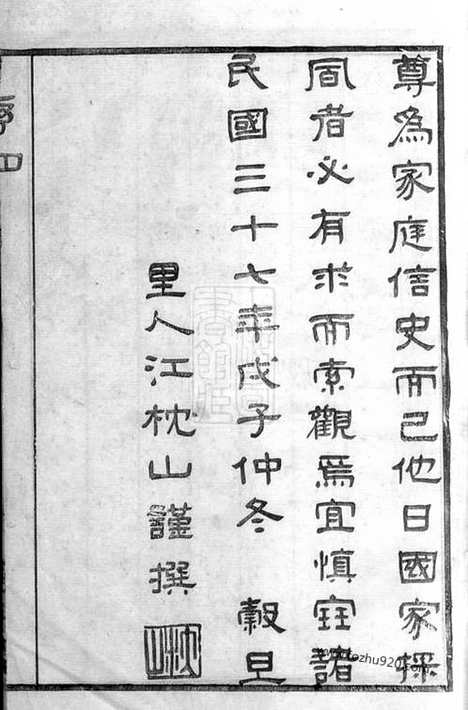 尊為家庭信史而已他日國家採
風者必有求而索觀焉宜慎寶諸
民國三十七年戊子仲冬　穀旦
里人江枕山謹撰
枕山
序 四